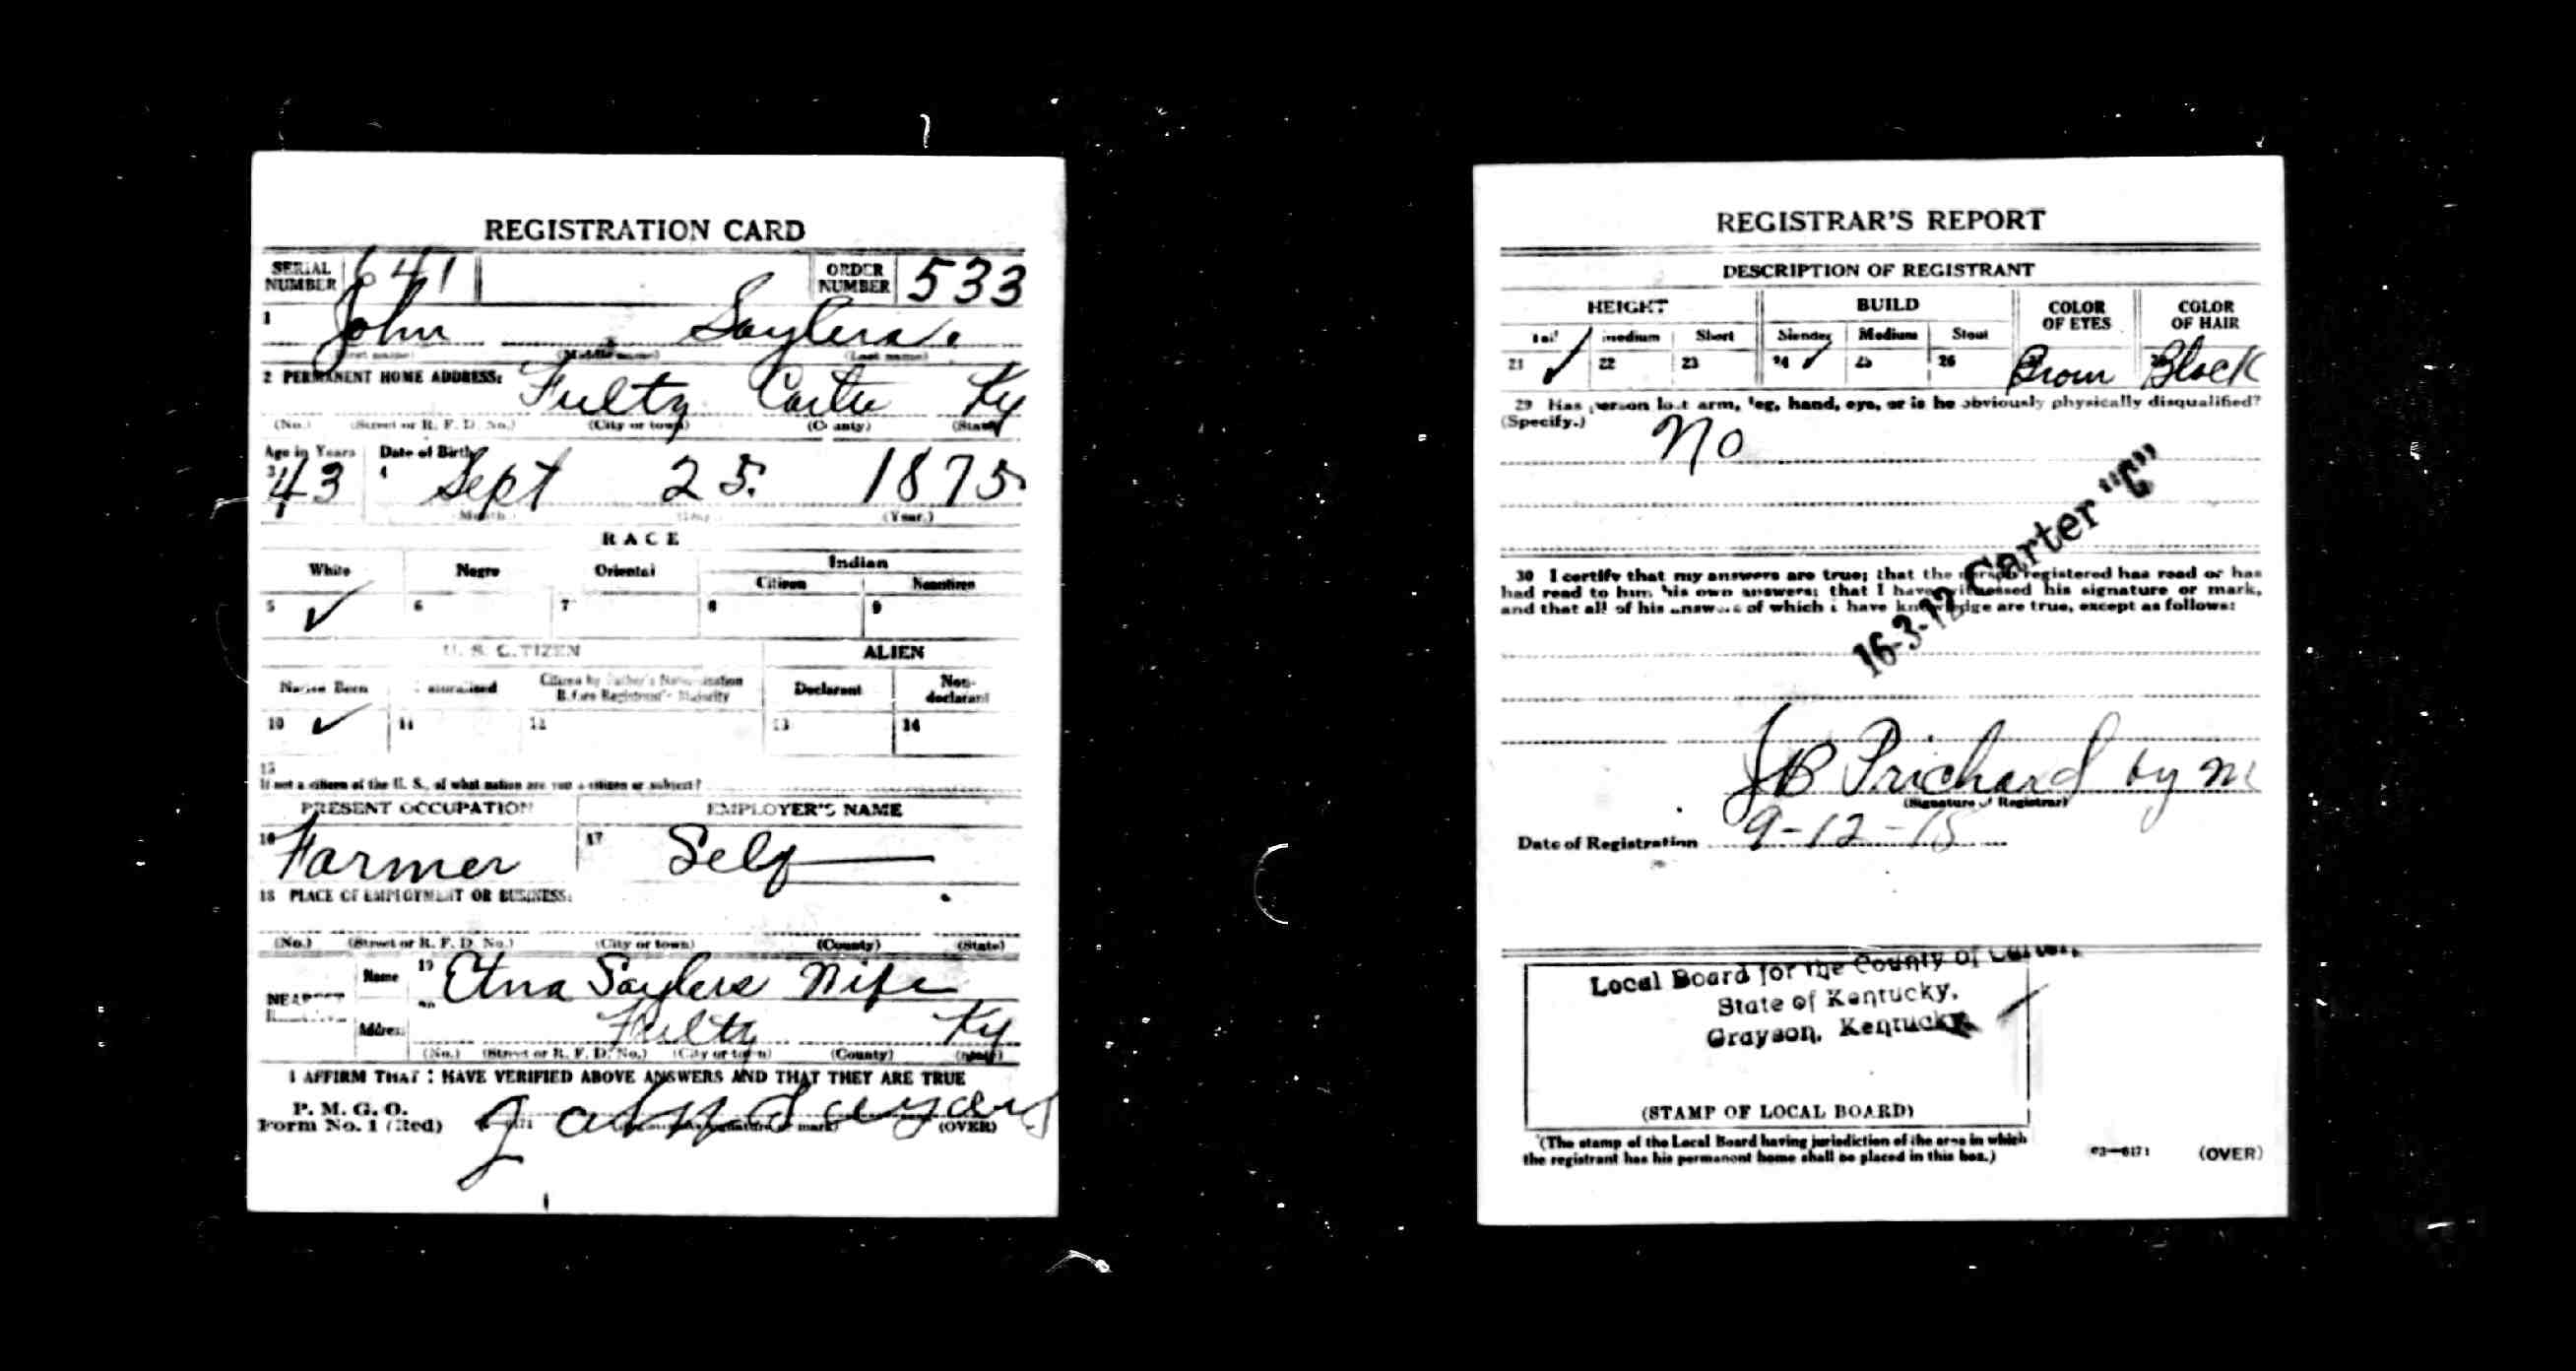 REGISTRATION CARD
SERIAL NUMBER 641 ORDER NUMBER 533
1 John Saylers.
(First name) (Middle name) (Last name)
2 PERMANENT HOME ADDRESS:
Fultz Carter Ky
(No.) (Street or R. F. D. No.) (City or town) (County) (State)
Age in Years Date of Birth
3 43 4 Sept 25. 1875
(Month.) (Day.) (Year.)
RACE
White Negro Oriental Indian
Citizen Noncitizen
5 ✓ 6 7 8 9
U. S. CITIZEN ALIEN
Native Born Naturalized Citizen by Father's Naturalization Before Registrant's Majority Declarant Non-declarant
10 ✓ 11 12 13 14
15
If not a citizen of the U. S., of what nation are you a citizen or subject?
PRESENT OCCUPATION EMPLOYER'S NAME
16 Farmer 17 Self
18 PLACE OF EMPLOYMENT OR BUSINESS:
(No.) (Street or R. F. D. No.) (City or town) (County) (State)
NEAREST Name 19 Etna Saylers Wife
Address 20 Fultz Ky
(No.) (Street or R. F. D. No.) (City or town) (County) (State)
I AFFIRM THAT I HAVE VERIFIED ABOVE ANSWERS AND THAT THEY ARE TRUE
P. M. G. O.
Form No. 1 (Red) John
(OVER)
REGISTRAR'S REPORT
DESCRIPTION OF REGISTRANT
HEIGHT BUILD COLOR OF EYES COLOR OF HAIR
Tall medium Short Slender Medium Stout
21 ✓ 22 23 24 ✓ 25 26 Brown Black
29 Has person lost arm, leg, hand, eye, or is he obviously physically disqualified?
(Specify.) No
16-3-12 Carter "C"
30 I certify that my answers are true; that the person registered has read or has
had read to him his own answers; that I have witnessed his signature or mark,
and that all of his answers of which I have knowledge are true, except as follows:
J B Prichard by M
(Signature of Registrar)
Date of Registration 9-12-18
Local Board for the County of Carter,
State of Kentucky,
Grayson, Kentucky.
(STAMP OF LOCAL BOARD)
(The stamp of the Local Board having jurisdiction of the area in which
the registrant has his permanent home shall be placed in this box.)
03—6171 (OVER)